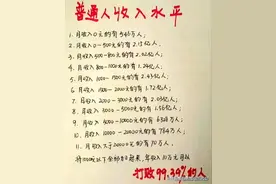 普通人收入水平
1. 月收入0元的有546万人;
2. 月收入0-500元的有2.15亿人;
3. 月收入500-800元的有2.02亿人;
4. 月收入800-1000元的有1.24亿人;
5. 月收入1000-1500元的有2.43亿人;
6. 月收入1500-2000元的有1.72亿人;
7. 月收入2000-3000元的有2.05亿;
8. 月收入3000-5000元的有1.56亿人;
9. 月收入5000-10000元的有6328万人;
10. 月收入10000-20000元的有784万人;
11. 月收入大于20000元的有70万人,
打败99.39%的人